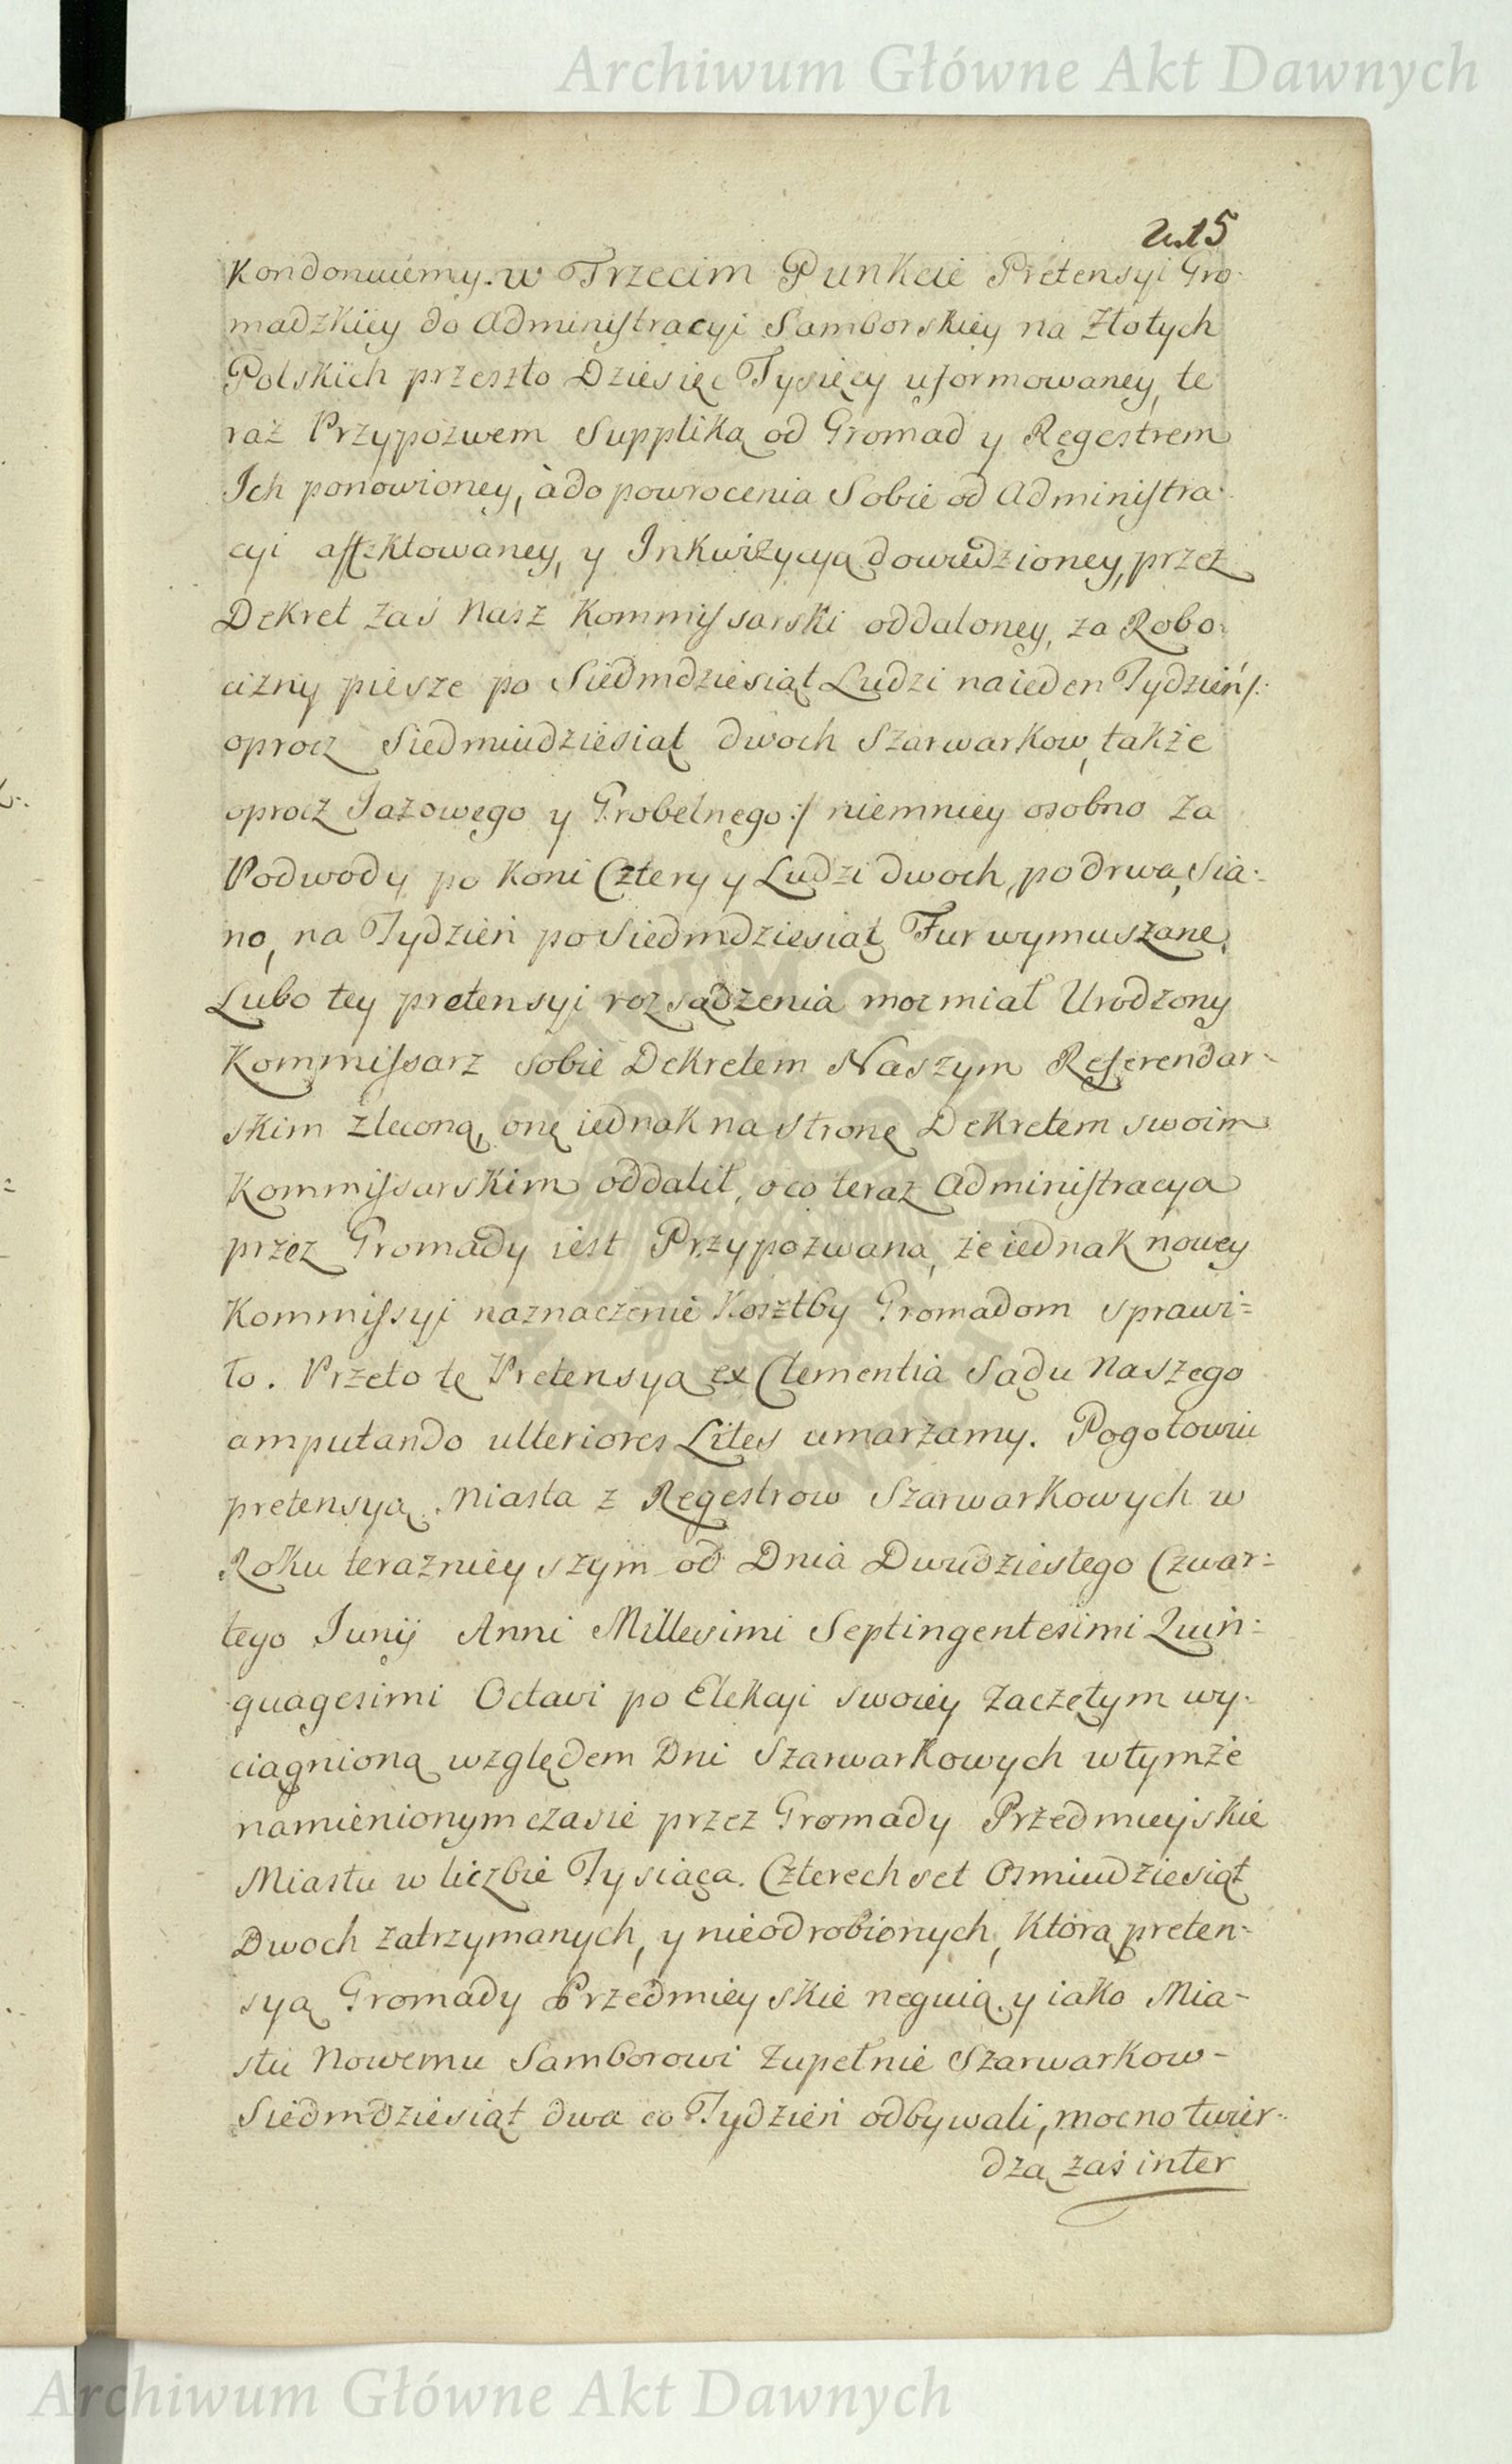 Archiwum Główne Akt Dawnych
215
Kondonuiemy. w Trzecim Punkcie Pretensyi Gro-
madzkiey do Administracyi Samborskiey na Złotych
Polskich przeszło Dziesięc Tysięcy uformowaney, te
raz Przypozwem Suppliką od Gromad y Regestrem
Ich ponowioney, à do powrocenia Sobie od Administra-
cyi affektowaney, y Inkwizycyą dowiedzioney, przez
Dekret zaś Nasz Kommissarski oddaloney, za Robo-
cizny piesze po Siedmdziesiąt Ludzi na ieden Tydzień /:
oprocz Siedmiudziesiąt dwoch Szarwarkow, także
oprocz Jazowego y Grobelnego :/ niemniey osobno za
Podwody po Koni Cztery y Ludzi dwoch, po drwa, Sia-
no, na Tydzień po Siedmdziesiąt Fur wymuszane.
Lubo tey pretensyi rozsądzenia moc miał Urodzony
Kommissarz sobie Dekretem Naszym Referendar-
skim zleconą, onę iednak na stronę Dekretem swoim
Kommissarskim oddalił, o co teraz Administracya
przez Gromady iest Przypozwana, że iednak nowey
Kommissyi naznaczenie Kosztby Gromadom sprawi=
ło. Przeto tę Pretensyą ex Clementia Sądu Naszego
amputando ulteriores Lites umarzamy. Pogotowiu
pretensyą Miasta z Regestrow Szarwarkowych w
Roku teraznieyszym od Dnia Dwudziestego Czwar=
tego Junij Anni Millesimi Septingentesimi Quin=
quagesimi Octavi po Elekcyi swoiey zaczętym wy-
ciągnioną względem Dni Szarwarkowych w tymże
namienionym czasie przez Gromady Przedmieyskie
Miastu w liczbie Tysiąca Czterechset Osmiudziesiąt
Dwoch zatrzymanych, y nieodrobionych, Którą preten-
syą Gromady Przedmieyskie neguią y iako Mia-
stu Nowemu Samborowi zupełnie Szarwarkow-
Siedmdziesiąt dwa co Tydzień odbywali, mocno twier-
dzą zaś inter
Archiwum Główne Akt Dawnych